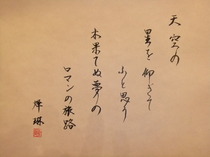 天空の
星を仰ぎて
ふと思う
未果てぬ夢の
ロマンの旅路